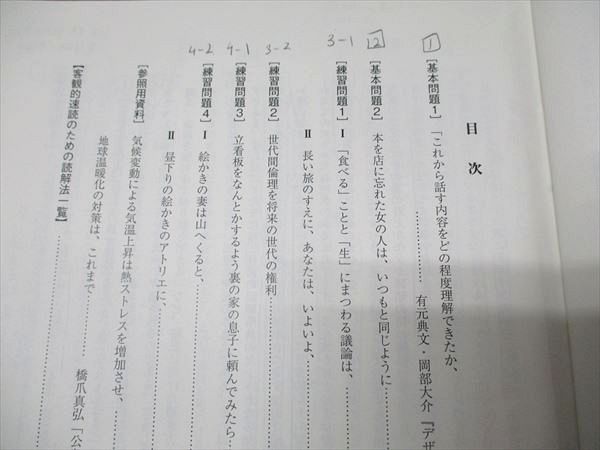 1
2
3-1
3-2
4-1
4-2
目次
【基本問題1】「これから話す内容をどの程度理解できたか、
………… 有元典文・岡部大介『デザ
【基本問題2】本を店に忘れた女の人は、いつもと同じように…………
【練習問題1】Ⅰ 「食べる」ことと「生」にまつわる議論は、
Ⅱ 長い旅のすえに、あなたは、いよいよ、…………
【練習問題2】世代間倫理を将来の世代の権利…………
【練習問題3】立看板をなんとかするよう裏の家の息子に頼んでみたら…………
【練習問題4】Ⅰ 絵かきの妻は山へくると、…………
Ⅱ 昼下りの絵かきのアトリエに、…………
【参照用資料】気候変動による気温上昇は熱ストレスを増加させ、
地球温暖化の対策は、これまで………… 橋爪真弘「公
【客観的速読のための読解法一覧】…………